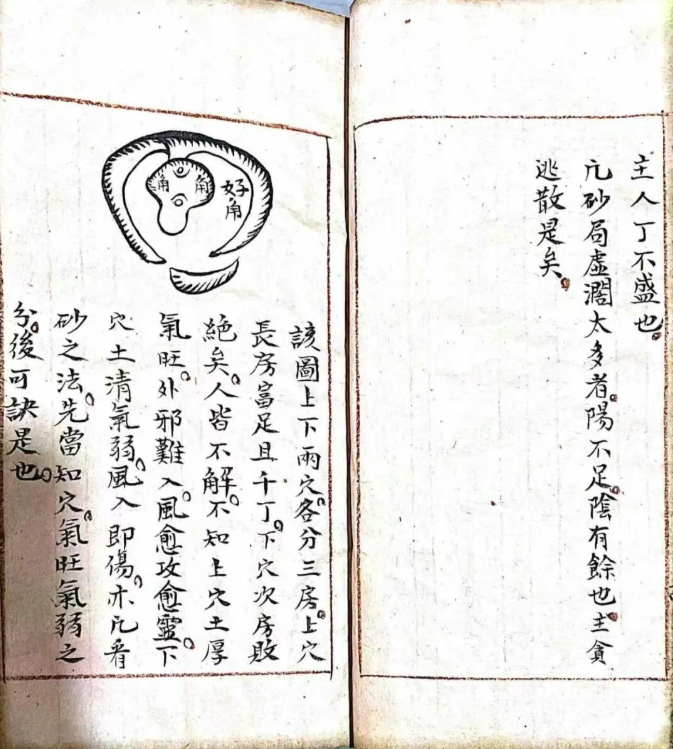 主人丁不盛也。
凢砂局虛濶太多者。陽不足。陰有餘也。主貪
逃散是矣。
角
角
好角
該圖上下兩穴。各分三房。上穴
長房富足且千丁。下穴次房敗
絕矣。人皆不解。不知上穴土厚
氣旺。外邪難入。風愈攻愈靈。下
穴土清氣弱。風入即傷。亦凢看
砂之法。先當知穴。氣旺氣弱之
分。後可訣是也。